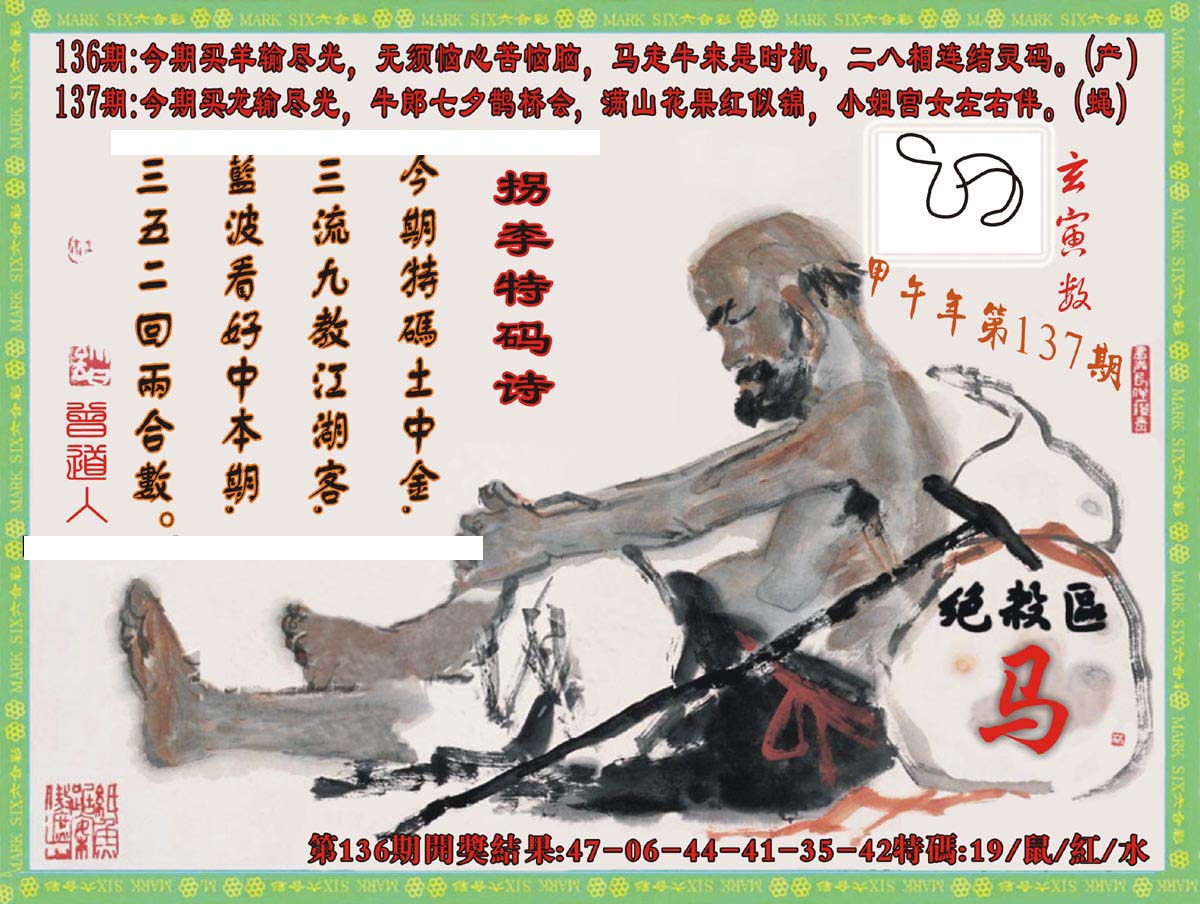 136期:今期买羊输尽光，无须恼心苦恼脑，马走牛来是时机，二八相连结灵码。(产)
137期:今期买龙输尽光，牛郎七夕鹊桥会，满山花果红似锦，小姐宫女左右伴。(蝇)
玄寅数
甲午年第137期
拐李特码诗
今期特碼土中金.
三流九教江湖客.
藍波看好中本期.
三五二回兩合數。
曾道人
绝殺區
马
第136期開獎結果:47-06-44-41-35-42特碼:19/鼠/紅/水
MARK SIX六合彩